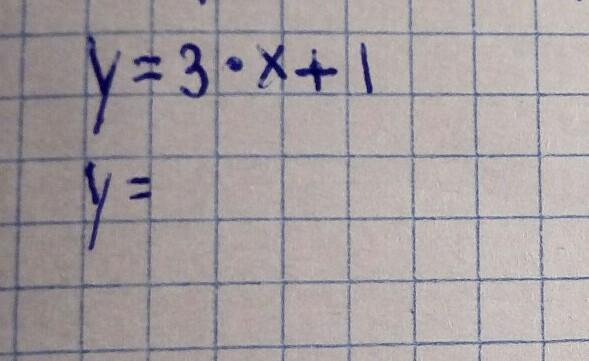 y = 3 · x + 1
y =